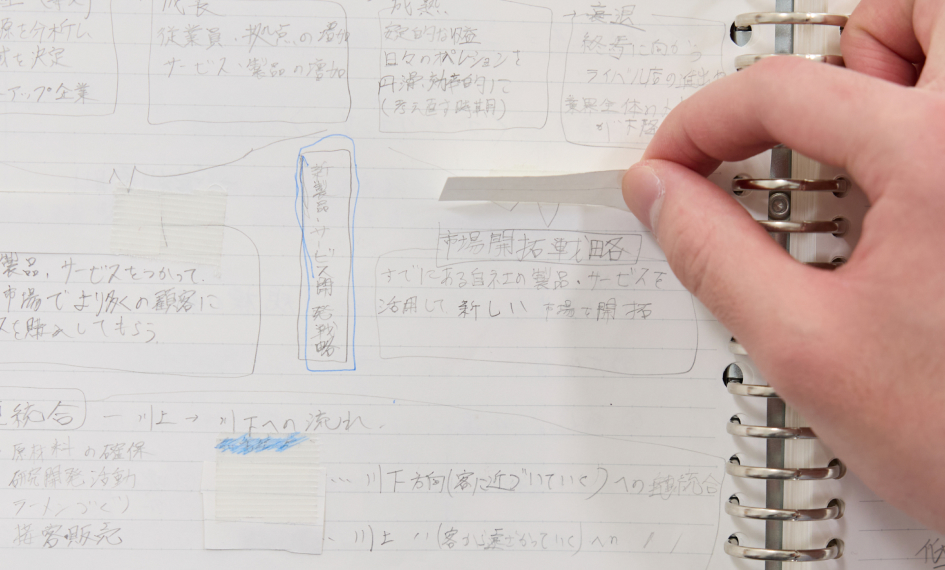 成長
従業員・拠点の増加
サービス・製品の増加
成熟
日々のオペレーションを
円滑、効率的に
(考え直す時期)
→ 衰退
終焉に向かう
ライバル店の進出や
業界全体の
が下降
源を分析し
を決定
アップ企業
新製品・サービス開発戦略
市場開拓戦略
すでにある自社の製品・サービスを
活用して新しい市場を開拓
製品、サービスをつかって、
市場でより多くの顧客に
スを購入してもらう。
統合 ― 川上 → 川下への流れ
原材料の確保
研究開発活動
販売
… 川下方向(客に近づいていく)への垂直統合
… 川上 〃 (客から遠ざかっていく)への 〃